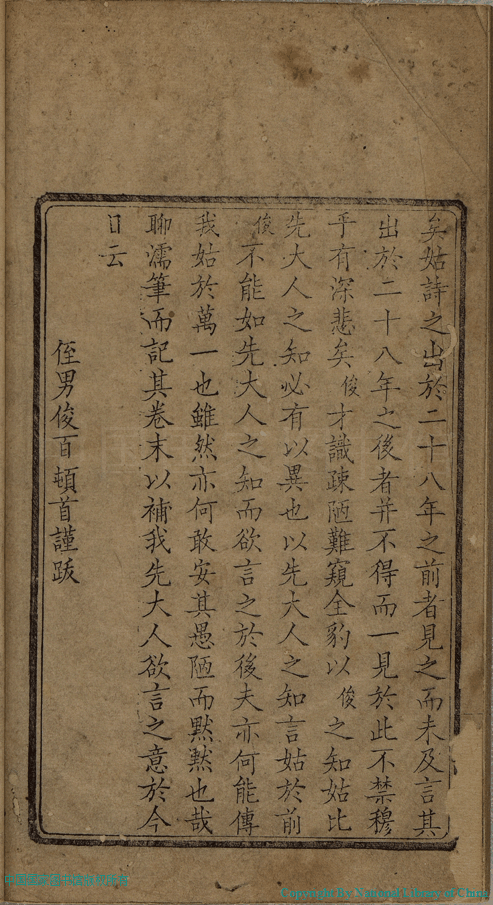 矣姑詩之出於二十八年之前者見之而未及言其
出於二十八年之後者并不得而一見於此不禁穆
乎有深悲矣俊才識疎陋難窺全豹以俊之知姑比
先大人之知必有以異也以先大人之知言姑於前
俊不能如先大人之知而欲言之於後夫亦何能傳
我姑於萬一也雖然亦何敢安其愚陋而默默也哉
聊濡筆而記其卷末以補我先大人欲言之意於今
日云
侄男俊百頓首謹跋
Copyright By National Library of China